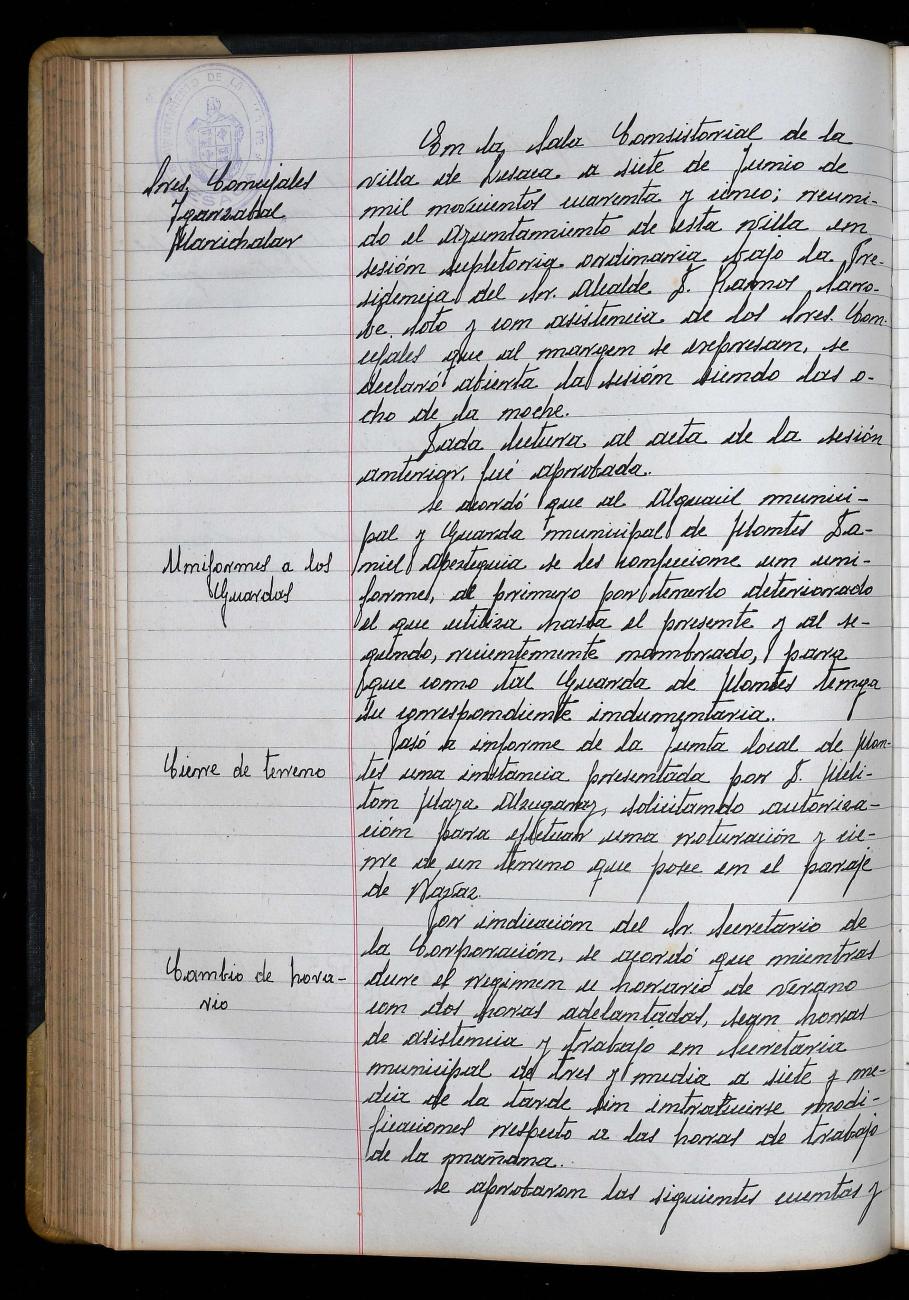 AYUNTAMIENTO DE LA
Sres. Concejales
Igarzabal
Marichalar
En la Sala Consistorial de la
villa de Lesaca a siete de Junio de
mil novecientos cuarenta y cinco; reuni-
do el Ayuntamiento de esta villa en
sesión supletoria ordinaria bajo la Pre-
sidencia del Sr. Alcalde D. Ramos Saro-
be Soto y con asistencia de los Sres. Con-
cejales que al margen se expresan, se
declaró abierta la sesión siendo las o-
cho de la noche.
Dada lectura al acta de la sesión
anterior, fue aprobada.
Uniformes a los
Guardas
Se acordó que al Alguacil munici-
pal y Guarda municipal de Montes Da-
niel Apezteguia se les confeccione un uni-
forme, al primero por tenerlo deteriorado
el que utiliza hasta el presente y al se-
gundo, recientemente nombrado, para
que como tal Guarda de Montes tenga
su correspondiente indumentaria.
Cierre de terreno
Pasó a informe de la Junta local de Mon-
tes una instancia presentada por D. Meli-
ton Maya Alzugaray, solicitando autoriza-
ción para efectuar una roturación y cie-
rre de un terreno que posee en el paraje
de Nazaz.
Cambio de hora-
rio
Por indicación del Sr. Secretario de
la Corporación, se acordó que mientras
dure el regimen u horario de verano
con dos horas adelantadas, sean horas
de asistencia y trabajo en Secretaria
municipal de tres y media a siete y me-
dia de la tarde sin introducirse modi-
ficaciones respecto a las horas de trabajo
de la mañana.
Se aprobaron las siguientes cuentas y